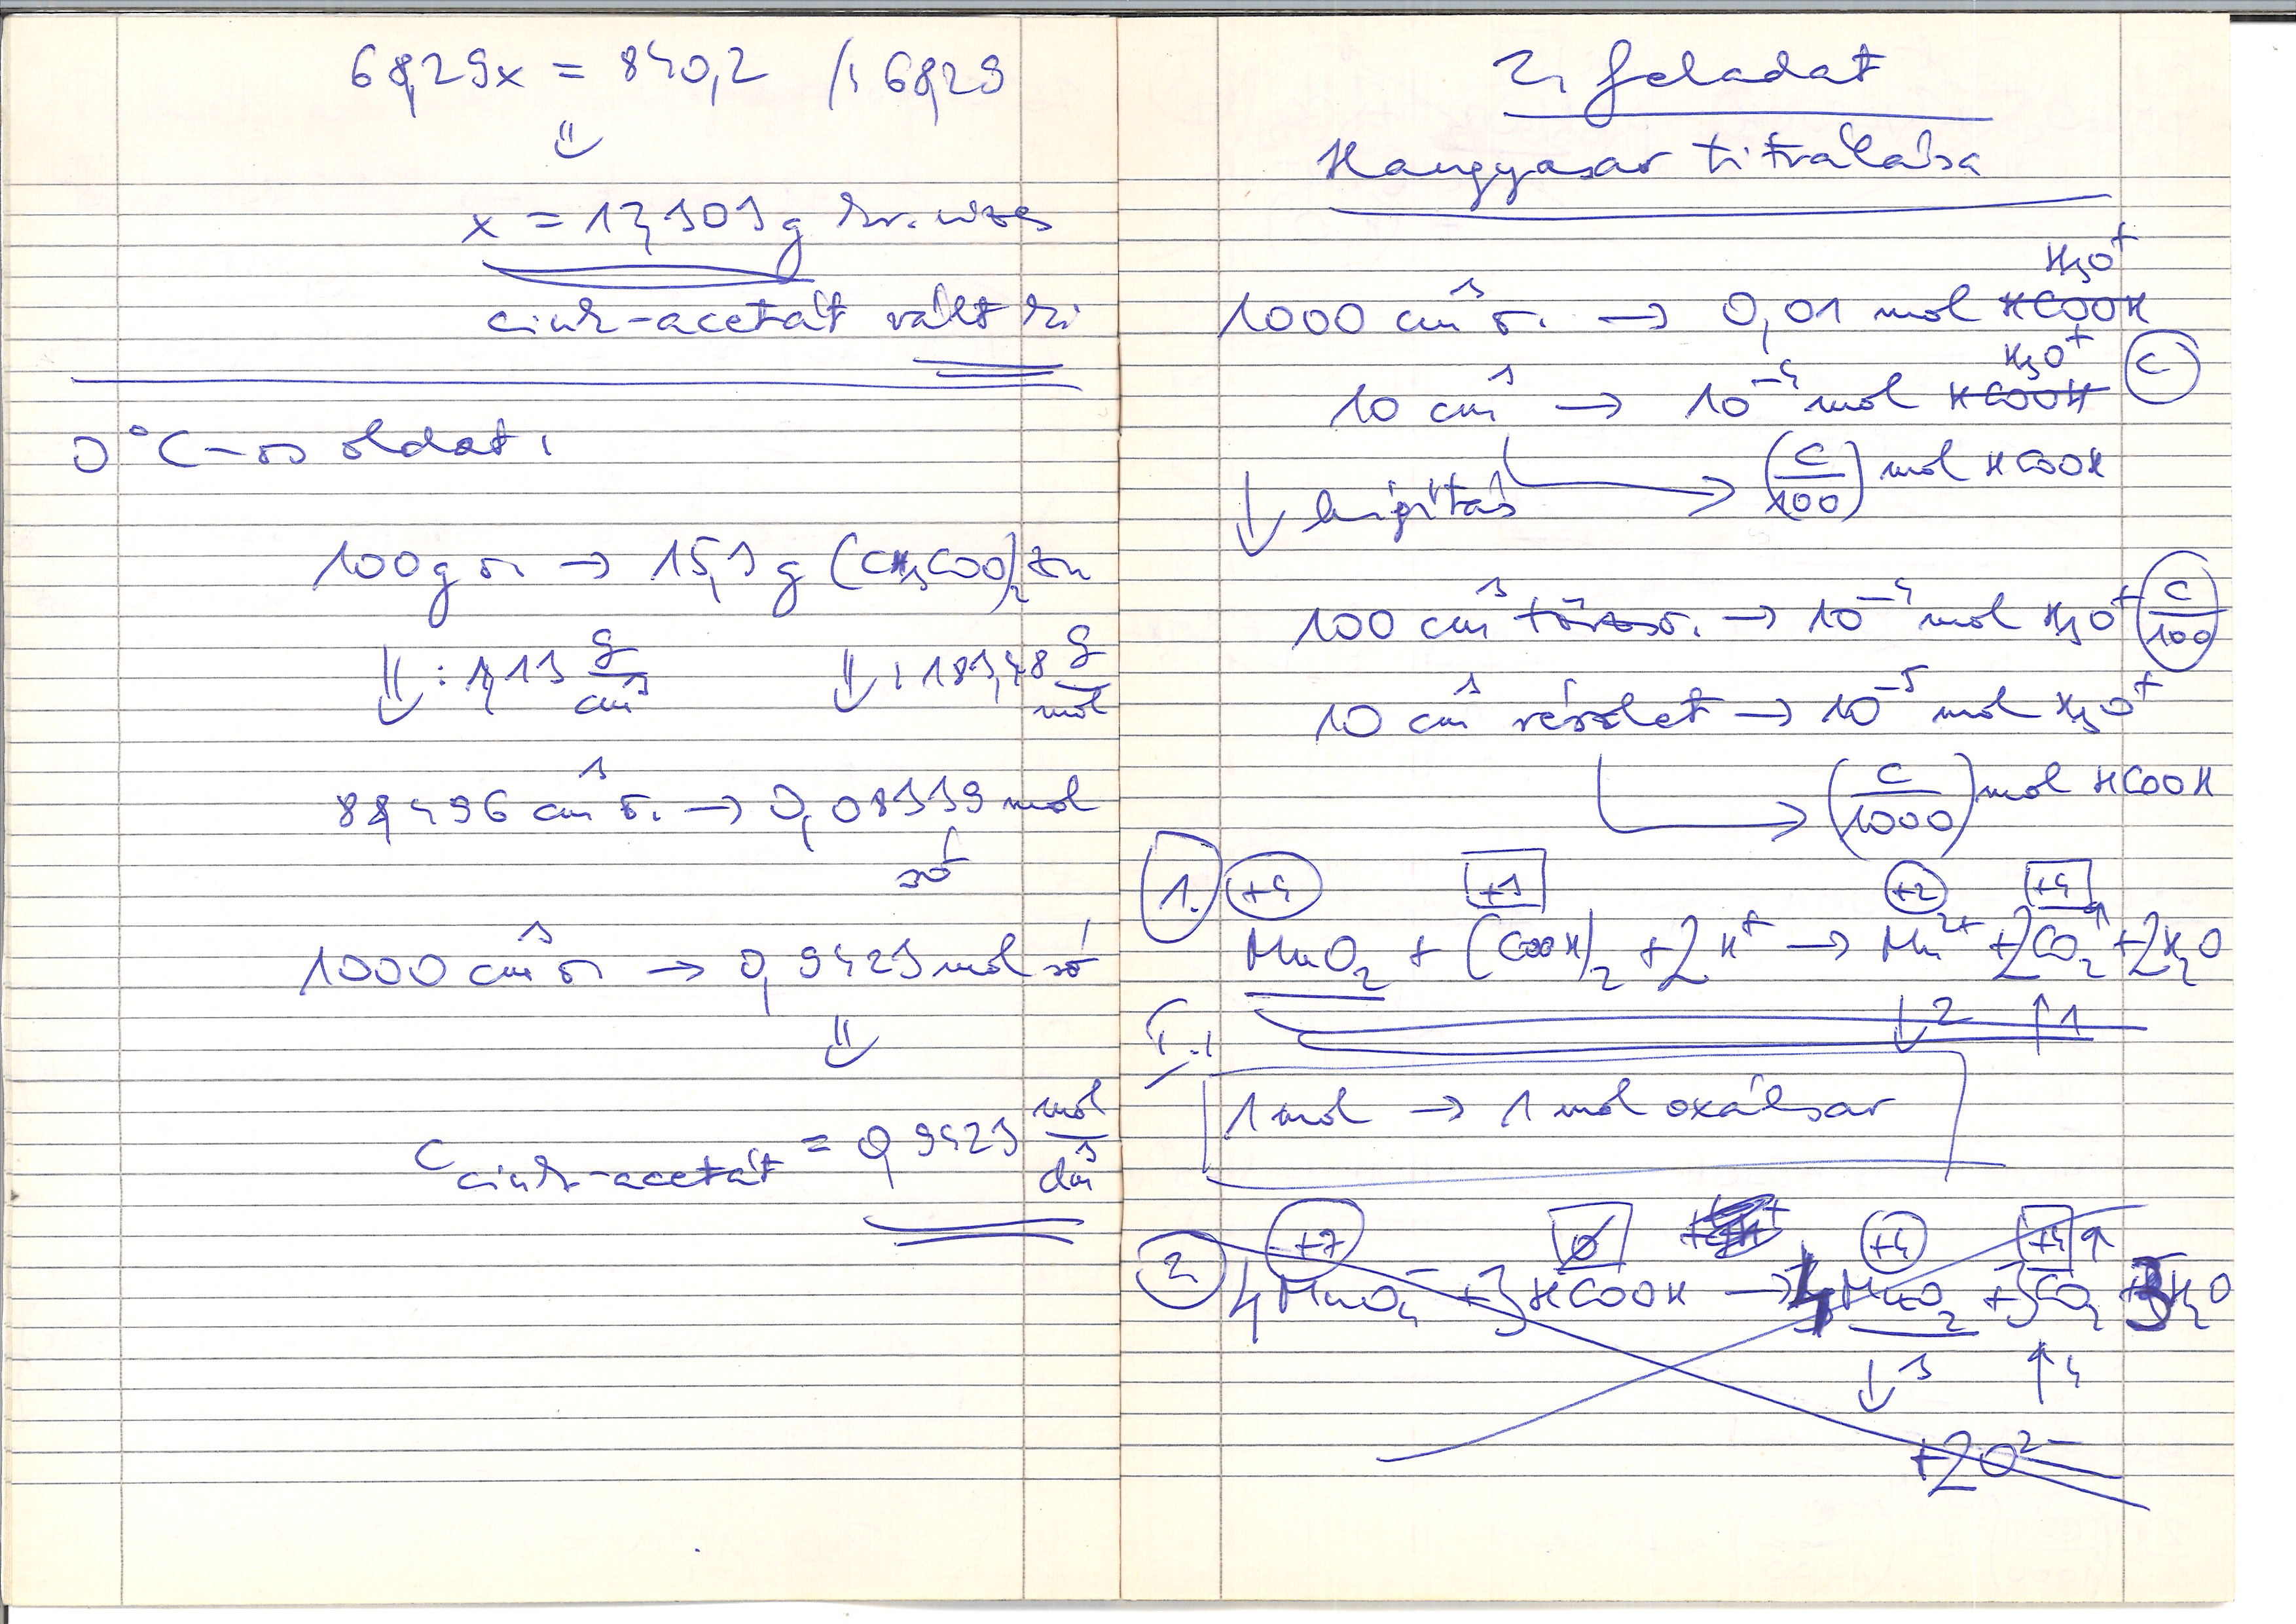 68,29x = 840,2 /: 68,29
⇓
x = 12,303 g kr. vizes
cink-acetát vált ki
0°C-os oldat:
100 g o. → 15,3 g (CH₃COO)₂Zn
⇓ : 1,13 g/cm³ ⇓ : 183,48 g/mol
88,496 cm³ o. → 0,08339 mol
só
1000 cm³ o. → 0,9423 mol só
⇓
c cink-acetát = 0,9423 mol/dm³
2. feladat
Hangyasav titrálása
H₃O⁺
1000 cm³ o. → 0,01 mol HCOOH
H₃O⁺
10 cm³ → 10⁻⁴ mol HCOOH (c)
↓ hígítás → (c/100) mol HCOOH
100 cm³ törzso. → 10⁻⁴ mol H₃O⁺ (c/100)
10 cm³ részlet → 10⁻⁵ mol H₃O⁺
→ (c/1000) mol HCOOH
1. +4 +3 +2 +4
MnO₂ + (COOH)₂ + 2H⁺ → Mn²⁺ + 2CO₂↑ + 2H₂O
↓2 ↑1
1 mol → 1 mol oxálsav
2. +7 0 +4 +4 ↑
4MnO₄⁻ + 3HCOOH → 4MnO₂ + 3CO₂ + 3H₂O
↓3 ↑4
+2O²⁻